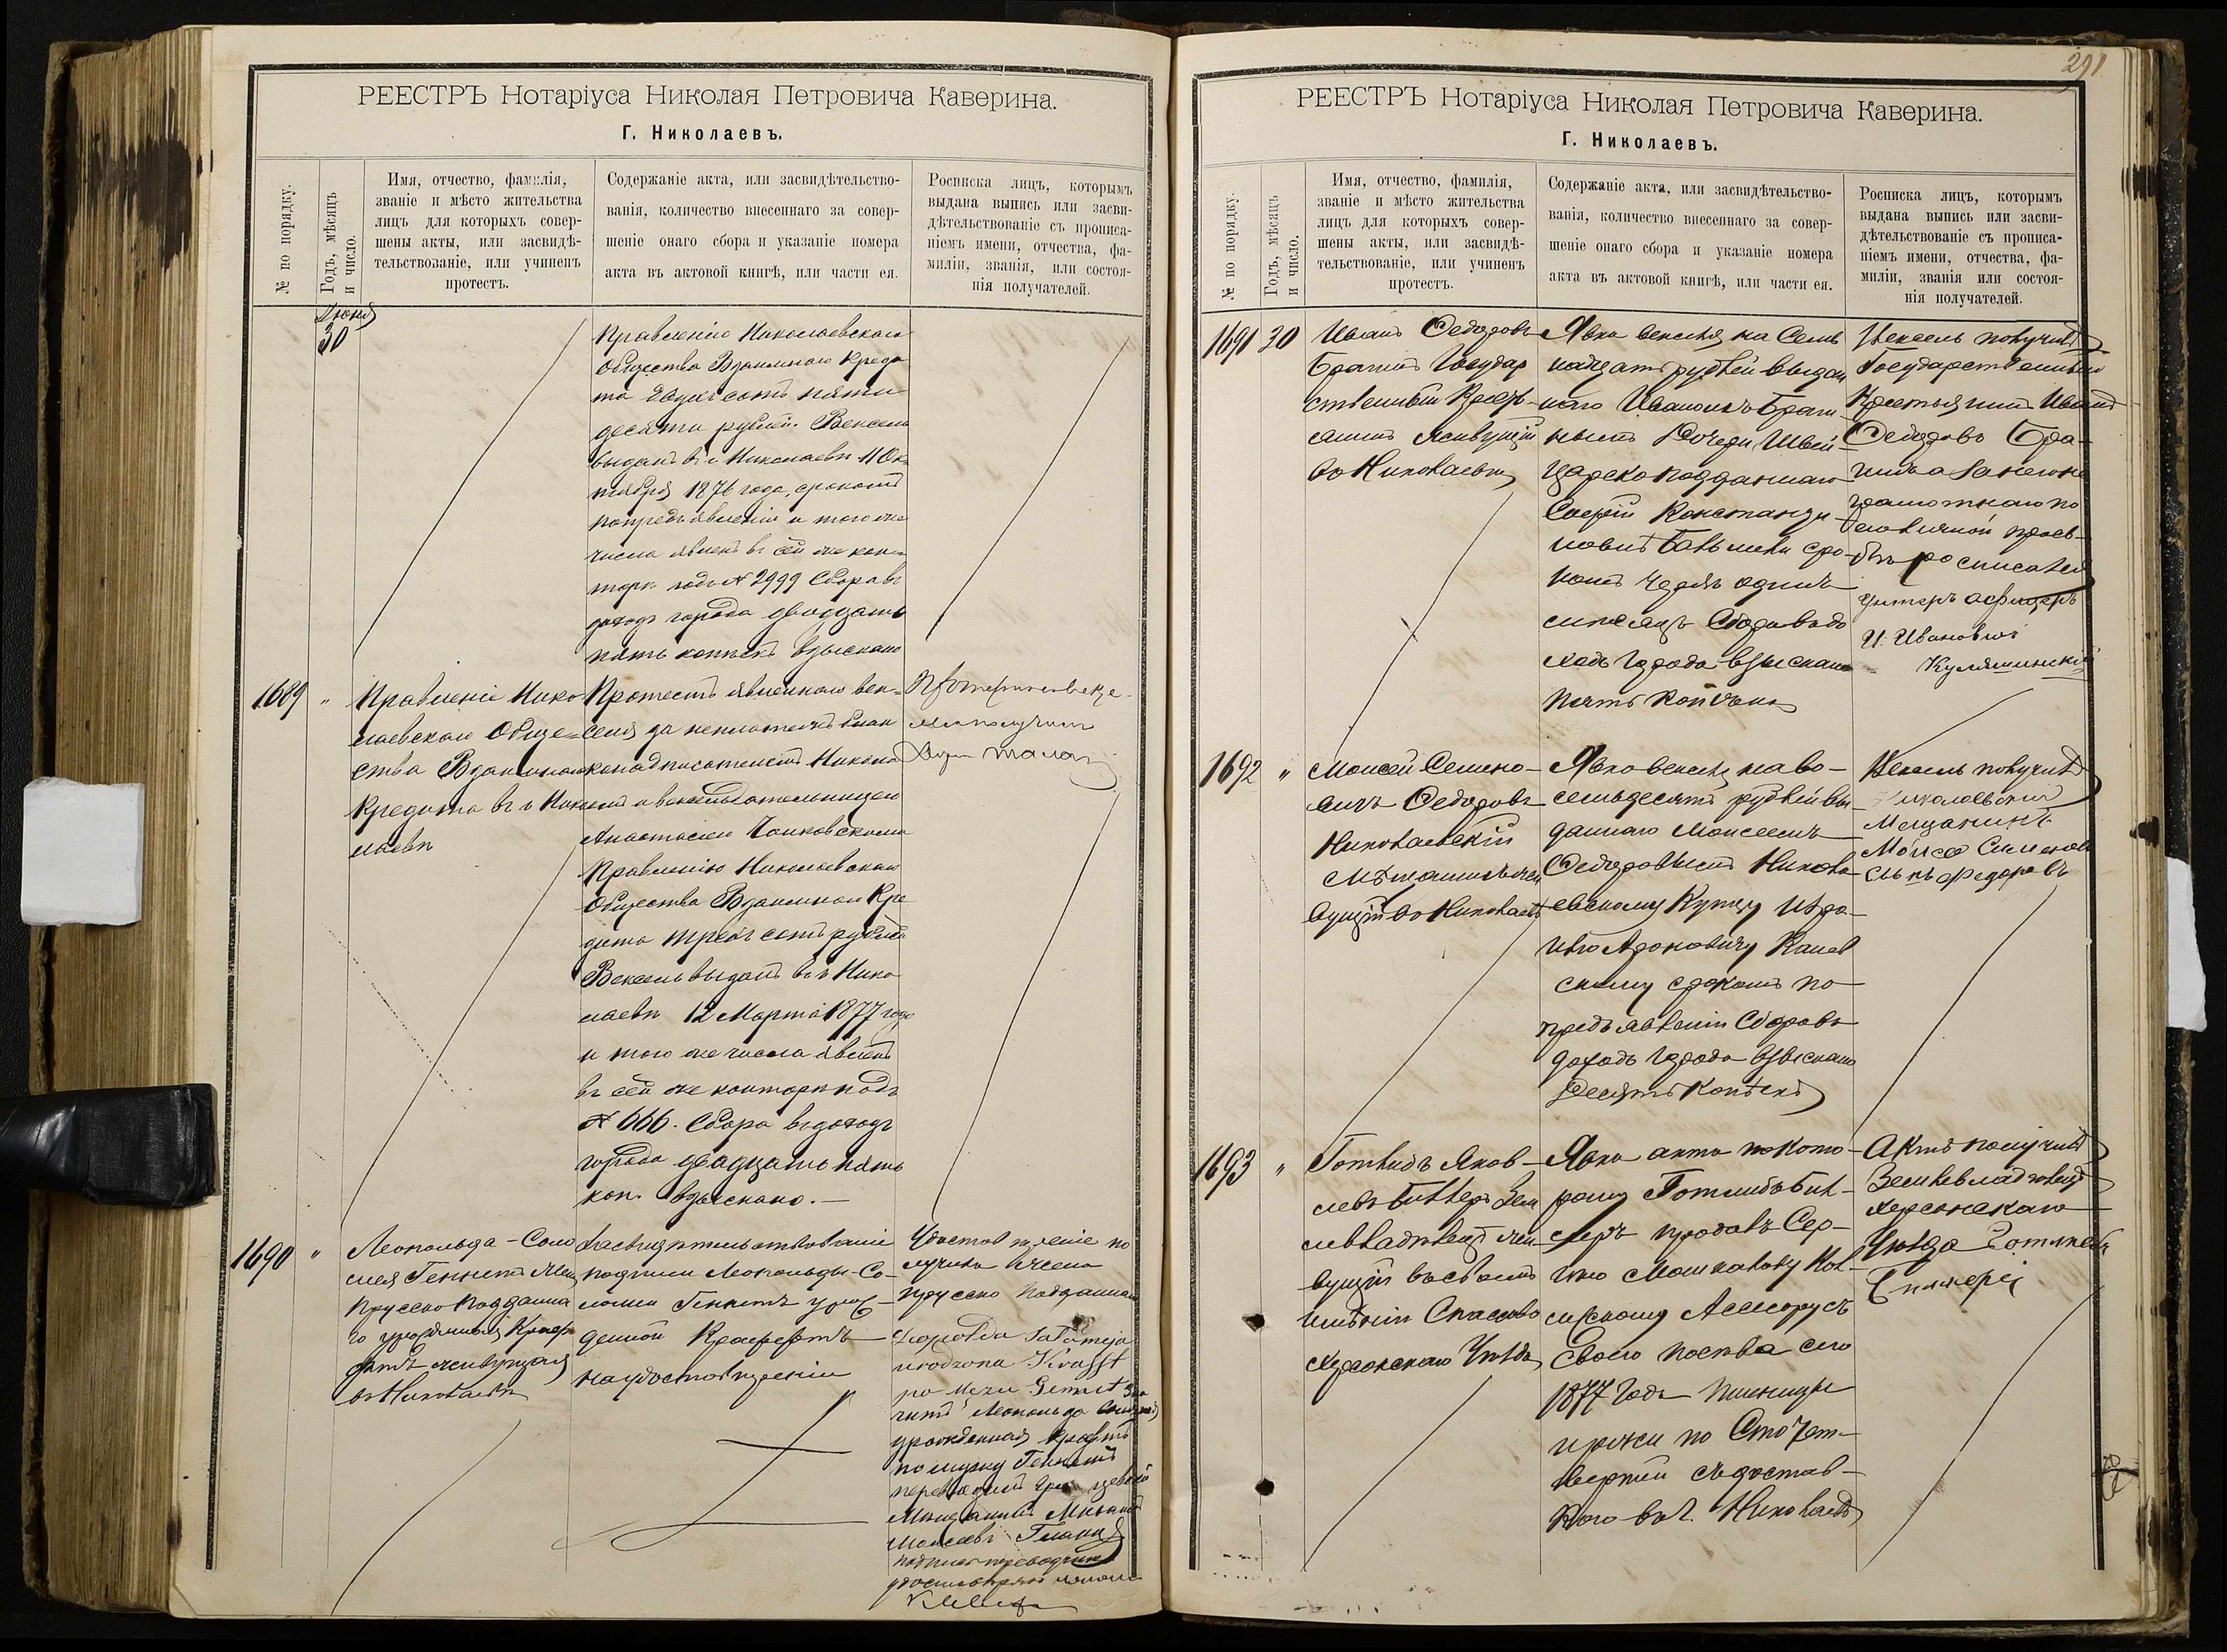 РЕЕСТРЪ Нотаріуса Николая Петровича Каверина.
Г. Николаевъ.
№ по порядку.
Годъ, мѣсяцъ
и число.
Имя, отчество, фамилія,
званіе и мѣсто жительства
лицъ для которыхъ совер-
шены акты, или засвидѣ-
тельствованіе, или учиненъ
протестъ.
Содержаніе акта, или засвидѣтельство-
ванія, количество внесеннаго за совер-
шеніе онаго сбора и указаніе номера
акта въ актовой книгѣ, или части ея.
Росписка лицъ, которымъ
выдана выпись или засви-
дѣтельствованіе съ прописа-
ніемъ имени, отчества, фа-
миліи, званія, или состоя-
нія получателей.
Іюня
30
Правленію Николаевскаго
Общества Взаимнаго Креди
та двухъ сотъ пяти
десяти рублей. Вексель
выданъ въ г Николаевѣ 11 Ок
тября 1876 года, срокомъ
по предъявленіи и того же
числа явленъ въ сей же кон
торѣ подъ № 2999 Сбора въ
доходъ города двадцать
пять копѣекъ взыскано
1689 "
Правленіе Нико
лаевскаго Обще=
ства Взаимнаго
Кредита въ г Нико
лаевѣ
Протестъ явленнаго век=
селя за неплатежъ блан
конадписателемъ
и векселедательницею
Анастасіею Чайковскою
Правленію Николаевскаго
Общества Взаимнаго Кре
дита трехъ сотъ рублей
Вексель выданъ въ г Нико
лаевѣ 12 Марта 1877 года
и того же числа явленъ
въ сей же конторѣ подъ
№ 666. Сбора въ доходъ
города двадцать пять
коп. взыскано. —
получилъ
1690 "
Леопольда - Соло
мея Геннетъ жена
Прусско подданна
го урожденная Краф
фтъ живущая
въ Николаевѣ
Засвидѣтельствованіе
подписи Леопольды - Со-
ломеи Геннетъ урож-
денной Краффтъ
на удостовѣреніи
Удостовѣреніе по
лучила жена
Прусско подданнаго
Leopolda Salomeja
urodzona Krafft
po męzu Gennet зна
читъ Леопольда Соломея
урожденная Крафтъ
по мужу Геннетъ
переводилъ
Мѣщанинъ Михаилъ
Моисеевъ
подпись переводчика
удостовѣряю
РЕЕСТРЪ Нотаріуса Николая Петровича Каверина.
Г. Николаевъ.
291
№ по порядку.
Годъ, мѣсяцъ
и число.
Имя, отчество, фамилія,
званіе и мѣсто жительства
лицъ для которыхъ совер-
шены акты, или засвидѣ-
тельствованіе, или учиненъ
протестъ.
Содержаніе акта, или засвидѣтельство-
ванія, количество внесеннаго за совер-
шеніе онаго сбора и указаніе номера
акта въ актовой книгѣ, или части ея.
Росписка лицъ, которымъ
выдана выпись или засви-
дѣтельствованіе съ прописа-
ніемъ имени, отчества, фа-
миліи, званія или состоя-
нія получателей.
1691 30
Иванъ Федоровъ
Брагинъ Государ
ственный Кресть-
янинъ живущій
въ Николаевѣ
Явка векселя на Семь
надцать рублей выдан
наго Иваномъ Браги
нымъ дочери Швей-
царско подданнаго
Софіи Константи
новнѣ срo-
комъ чрезъ одинъ
мѣсяцъ Сбора въ до
ходъ города взыскано
пять копѣекъ
Вексель получилъ
Государственный
Крестьянинъ Иванъ
Федоровъ Бра-
гинъ а за него не
грамотнаго по
его личной прось-
бѣ росписался
унтеръ офицеръ
И. Ивановичъ
1692 "
Моисей Семено-
вичъ Федоровъ
Николаевскій
Мѣщанинъ жи
вущій въ Николаевѣ
Явка векселя на во-
семьдесятъ рублей вы
даннаго Моисеемъ
Федоровымъ Никола-
евскому Купцу
Ароновичу
срокомъ по
предъявленіи Сбора въ
доходъ города взыскано
Десять копѣекъ
Вексель получилъ
Николаевскій
Мещанинъ
Мойсей
Федоровъ
1693 "
Готлибъ Яков-
левъ Зем
левладѣлецъ жи
вущій въ своемъ
имѣніи Спасово
Херсонскаго Уѣзда
Явка акта по кото-
рому Готлибъ
продавъ Сер-
гею Машкалову
Своего посѣва сего
1877 Года пшеницы
и ржи по Сто чет-
вертей съ достав-
кою въ г. Николаевъ
Актъ получилъ
Землевладѣлецъ
Херсонскаго
Уѣзда